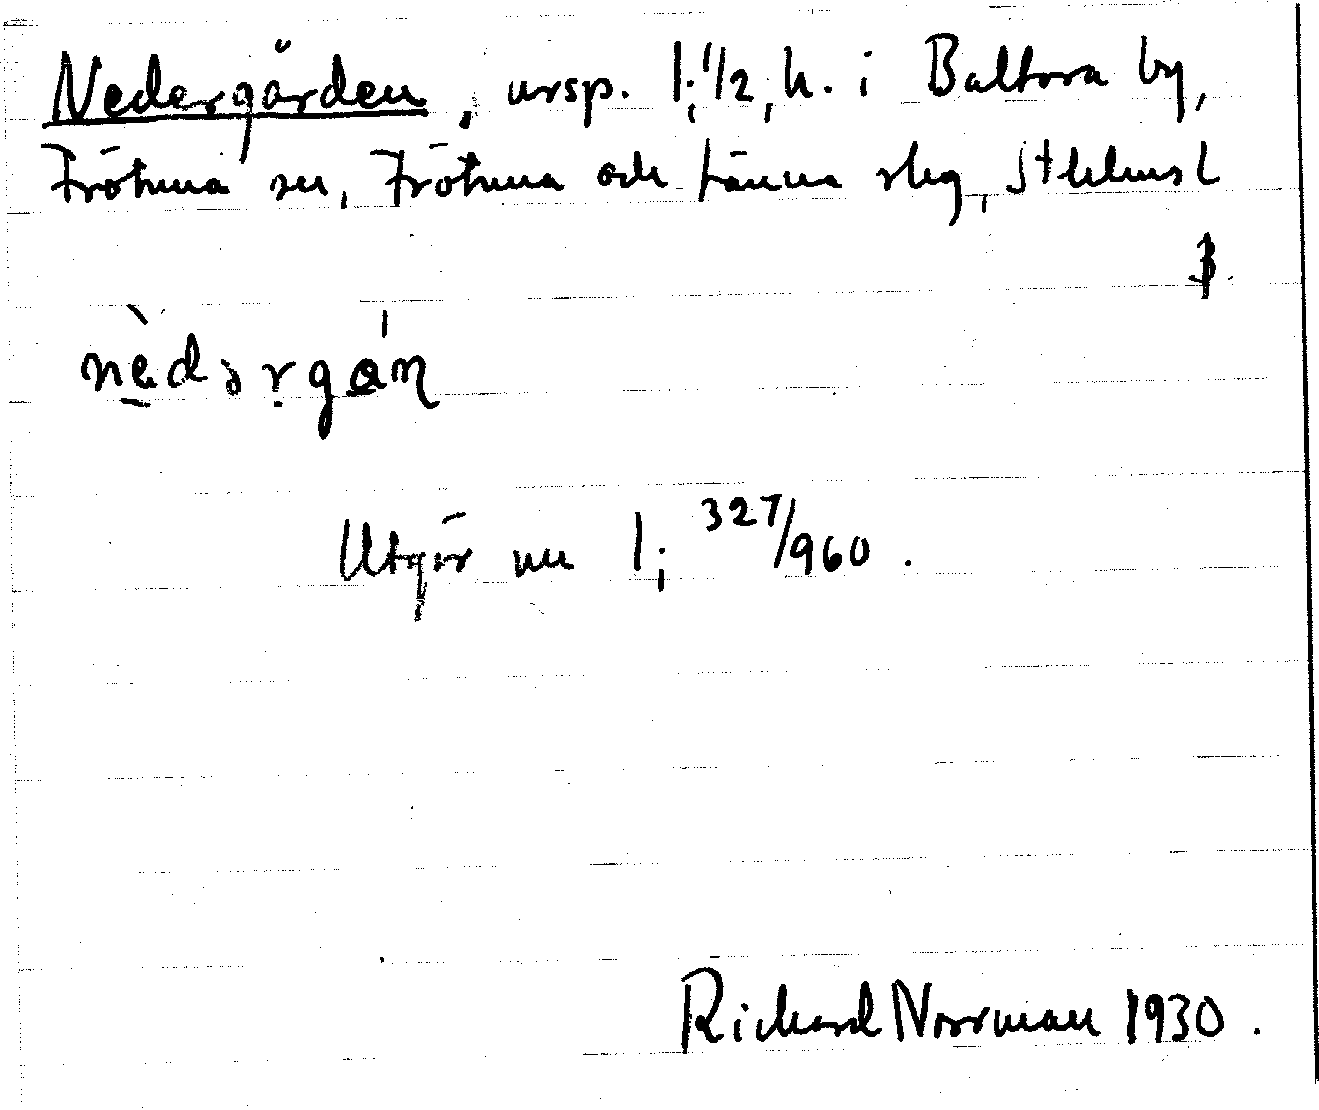 Nedergården, ursp. 1;1/2, h. i Baltora by,
Frötuna sn, Frötuna och Länna skg, Sthlms l
nèdərgán
Utgör nu 1; 327/960.
Richard Norrman 1930.